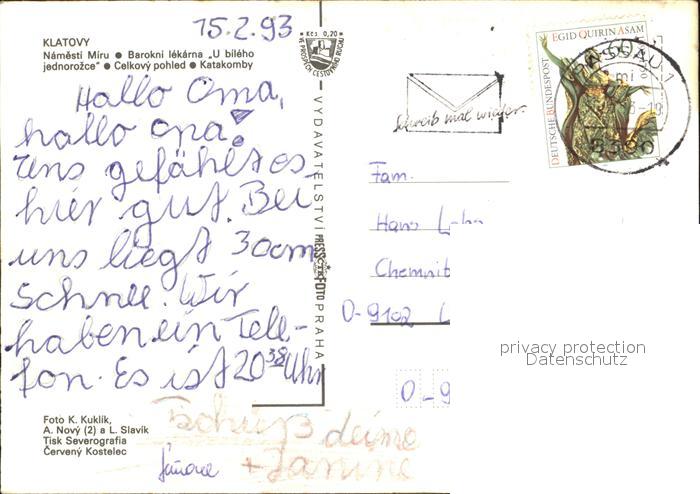 15.2.93
KLATOVY
Náměstí Míru ● Barokní lékárna „U bílého
jednorožce" ● Celkový pohled ● Katakomby
Hallo Oma,
hallo Opa!
Uns gefählt es
hier gut. Bei
uns liegt 30cm
Schnee. Wir
haben ein Tele-
fon. Es ist 20 38 Uhr
Tschüß deine
+ Janine
Foto K. Kuklík,
A. Nový (2) a L. Slavík
Tisk Severografia
Červený Kostelec
Kčs 0,20
VE PROSPĚCH CESTOVNÍHO RUCHU
VYDAVATELSTVÍ PRESSFOTO PRAHA
Schreib mal wieder.
EGID QUIRIN ASAM
DEUTSCHE BUNDESPOST
60
PASSAU 1
8390
Fam.
Hans L
Chemnit
O-9102
O-9
privacy protection
Datenschutz